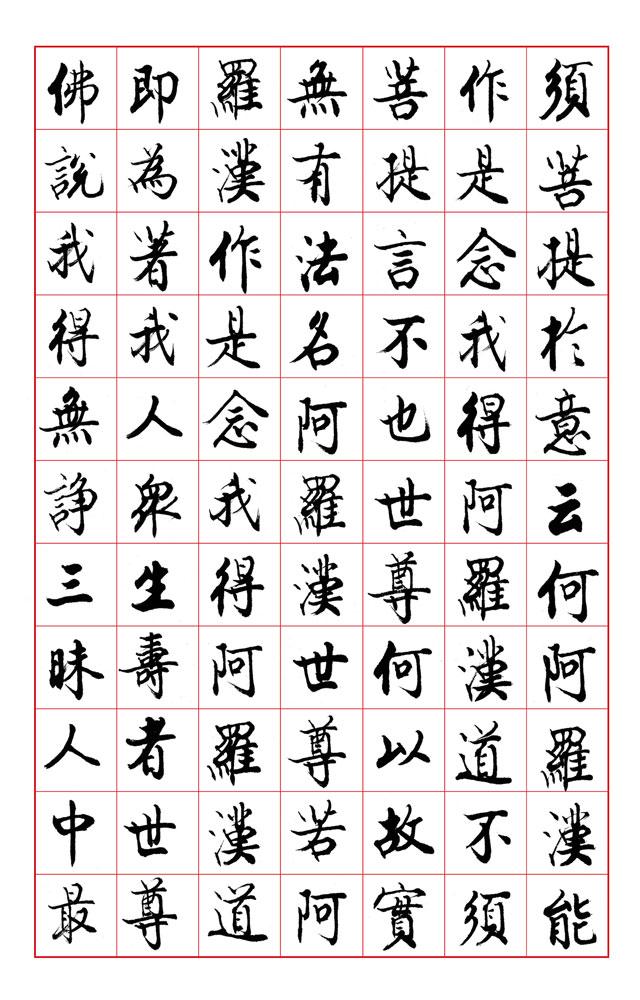 須菩提於意云何阿羅漢能
作是念我得阿羅漢道不須
菩提言不也世尊何以故實
無有法名阿羅漢世尊若阿
羅漢作是念我得阿羅漢道
即為著我人衆生壽者世尊
佛說我得無諍三昧人中最